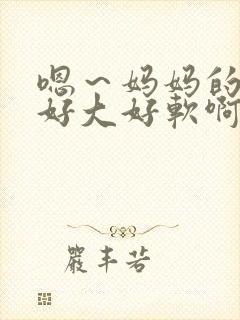 嗯～妈妈的
好大好軟啊
嚴丰若